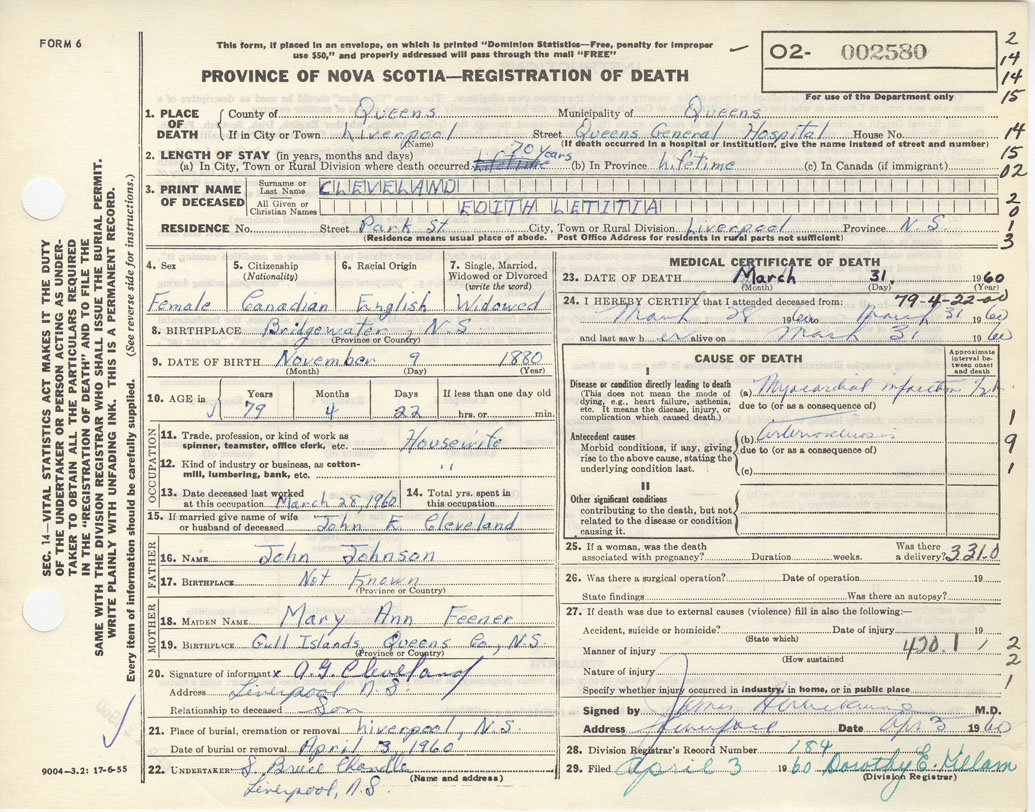 FORM 6
This form, if placed in an envelope, on which is printed "Dominion Statistics—Free, penalty for improper
use $50," and properly addressed will pass through the mail "FREE"
PROVINCE OF NOVA SCOTIA—REGISTRATION OF DEATH
02- 002580
For use of the Department only
2
14
14
15
14
15
02
2
0
1
3
1. PLACE OF DEATH County of Queens Municipality of Queens
If in City or Town Liverpool Street Queens General Hospital House No.
(Name) (If death occurred in a hospital or institution, give the name instead of street and number)
2. LENGTH OF STAY (in years, months and days) 70 Years
(a) In City, Town or Rural Division where death occurred lifetime (b) In Province lifetime (c) In Canada (if immigrant)
3. PRINT NAME OF DECEASED Surname or Last Name CLEVELAND
All Given or Christian Names EDITH LETITIA
RESIDENCE No. Street Park St. City, Town or Rural Division Liverpool Province N.S.
(Residence means usual place of abode. Post Office Address for residents in rural parts not sufficient)
SEC. 14—VITAL STATISTICS ACT MAKES IT THE DUTY
OF THE UNDERTAKER OR PERSON ACTING AS UNDER-
TAKER TO OBTAIN ALL THE PARTICULARS REQUIRED
IN THE "REGISTRATION OF DEATH" AND TO FILE THE
SAME WITH THE DIVISION REGISTRAR WHO SHALL ISSUE THE BURIAL PERMIT.
WRITE PLAINLY WITH UNFADING INK. THIS IS A PERMANENT RECORD.
Every item of information should be carefully supplied. (See reverse side for instructions.)
4. Sex 5. Citizenship (Nationality) 6. Racial Origin 7. Single, Married, Widowed or Divorced (write the word)
Female Canadian English Widowed
8. BIRTHPLACE Bridgewater, N.S
(Province or Country)
9. DATE OF BIRTH November 9 1880
(Month) (Day) (Year)
10. AGE in Years Months Days If less than one day
79 4 22 hrs. or min.
OCCUPATION
11. Trade, profession, or kind of work as
spinner, teamster, office clerk, etc. Housewife
12. Kind of industry or business, as cotton-
mill, lumbering, bank, etc. "
13. Date deceased last worked
at this occupation March 28, 1960 14. Total yrs. spent in this occupation
15. If married give name of wife
or husband of deceased John E. Cleveland
FATHER
16. NAME John Johnson
17. BIRTHPLACE Not Known
(Province or Country)
MOTHER
18. MAIDEN NAME Mary Ann Feener
19. BIRTHPLACE Gull Islands, Queens Co., N.S.
(Province or Country)
20. Signature of informant x A.G. Cleveland
Address Liverpool N.S.
Relationship to deceased Son
21. Place of burial, cremation or removal Liverpool, N.S.
Date of burial or removal April 3, 1960
22. UNDERTAKER S. Bruce Chandler
(Name and address)
Liverpool, N.S.
9004-3.2: 17-6-55
MEDICAL CERTIFICATE OF DEATH
23. DATE OF DEATH March 31, 1960
(Month) (Day) (Year)
24. I HEREBY CERTIFY that I attended deceased from: 79-4-22-00
March 28 1960 to March 31 1960
and last saw her alive on March 31 1960
CAUSE OF DEATH
Approximate interval between onset and death
I
Disease or condition directly leading to death
(This does not mean the mode of
dying, e.g., heart failure, asthenia,
etc. It means the disease, injury, or
complication which caused death.)
(a) Myocardial infarction
due to (or as a consequence of)
Antecedent causes
Morbid conditions, if any, giving
rise to the above cause, stating the
underlying condition last.
(b) Arteriosclerosis
due to (or as a consequence of)
(c)
II
Other significant conditions
contributing to the death, but not
related to the disease or condition
causing it.
1
9
1
25. If a woman, was the death
associated with pregnancy? Duration weeks. Was there a delivery? 331.0
26. Was there a surgical operation? Date of operation 19
State findings Was there an autopsy?
27. If death was due to external causes (violence) fill in also the following:—
Accident, suicide or homicide? Date of injury 19
(State which)
Manner of injury 420.1
(How sustained)
Nature of injury
Specify whether injury occurred in industry, in home, or in public place
1
2
2
1
Signed by James M.D.
Address Liverpool Date Apr 3 1960
28. Division Registrar's Record Number 184
29. Filed April 3 1960 Dorothy E. Millam
(Division Registrar)